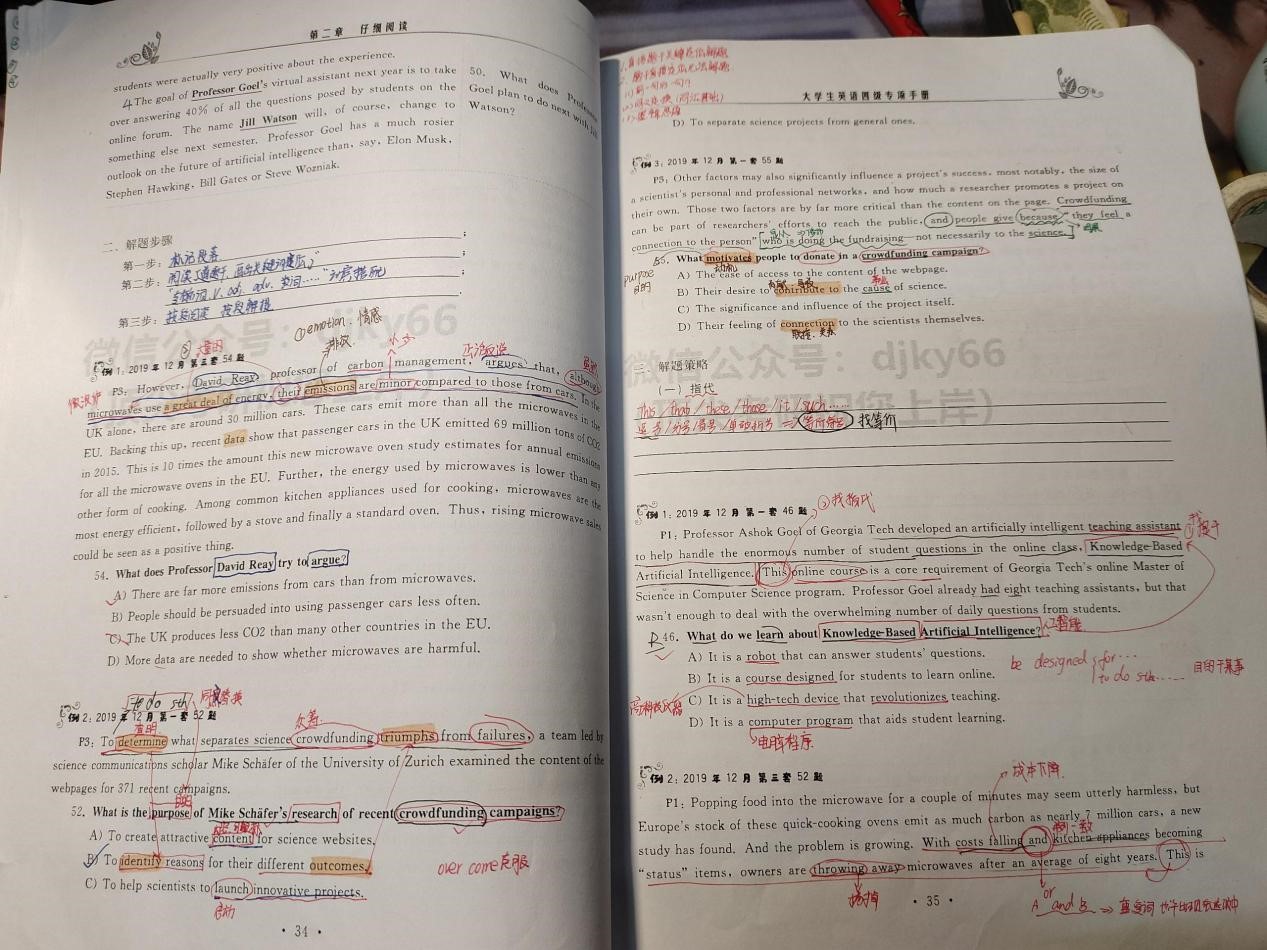 第二章 仔细阅读
students were actually very positive about the experience.
4 The goal of Professor Goel's virtual assistant next year is to take
over answering 40% of all the questions posed by students on the
online forum. The name Jill Watson will, of course, change to
something else next semester. Professor Goel has a much rosier
outlook on the future of artificial intelligence than, say, Elon Musk,
Stephen Hawking, Bill Gates or Steve Wozniak.
50. What does Professor
Goel plan to do next with Jill
Watson?
二、解题步骤
第一步：标记段落；
第二步：
第三步：
①emotion 情感
排放
例 1：2019 年 12 月 第三套 54 题
微波炉
P3: However, David Reay, professor of carbon management, argues that, although
microwaves use a great deal of energy, their emissions are minor compared to those from cars. In the
UK alone, there are around 30 million cars. These cars emit more than all the microwaves in the
EU. Backing this up, recent data show that passenger cars in the UK emitted 69 million tons of CO2
in 2015. This is 10 times the amount this new microwave oven study estimates for annual emissions
for all the microwave ovens in the EU. Further, the energy used by microwaves is lower than any
other form of cooking. Among common kitchen appliances used for cooking, microwaves are the
most energy efficient, followed by a stove and finally a standard oven. Thus, rising microwave sales
could be seen as a positive thing.
54. What does Professor David Reay try to argue?
A) There are far more emissions from cars than from microwaves.
B) People should be persuaded into using passenger cars less often.
C) The UK produces less CO2 than many other countries in the EU.
D) More data are needed to show whether microwaves are harmful.
to do sth 同义替换
例 2：2019 年 12 月 第一套 52 题
查明
众筹
P3: To determine what separates science crowdfunding triumphs from failures, a team led by
science communications scholar Mike Schäfer of the University of Zurich examined the content of the
webpages for 371 recent campaigns.
目的
52. What is the purpose of Mike Schäfer's research of recent crowdfunding campaigns?
A) To create attractive content for science websites.
B) To identify reasons for their different outcomes.
over come克服
C) To help scientists to launch innovative projects.
启动
· 34 ·
大学生英语四级专项手册
D) To separate science projects from general ones.
例 3：2019 年 12 月 第一套 55 题
P5: Other factors may also significantly influence a project's success, most notably, the size of
a scientist's personal and professional networks, and how much a researcher promotes a project on
their own. Those two factors are by far more critical than the content on the page. Crowdfunding
can be part of researchers' efforts to reach the public, and people give because "they feel a
connection to the person" who is doing the fundraising—not necessarily to the science.
55. What motivates people to donate in a crowdfunding campaign?
purpose
目的
动机
A) The ease of access to the content of the webpage.
B) Their desire to contribute to the cause of science.
C) The significance and influence of the project itself.
D) Their feeling of connection to the scientists themselves.
联接、关系
三、解题策略
（一）指代
this / that / these / those / it / such ......
找等价
②找指代
例 1：2019 年 12 月 第一套 46 题
P1: Professor Ashok Goel of Georgia Tech developed an artificially intelligent teaching assistant
to help handle the enormous number of student questions in the online class, Knowledge-Based
Artificial Intelligence. This online course is a core requirement of Georgia Tech's online Master of
Science in Computer Science program. Professor Goel already had eight teaching assistants, but that
wasn't enough to deal with the overwhelming number of daily questions from students.
B 46. What do we learn about Knowledge-Based Artificial Intelligence?
人工智能
A) It is a robot that can answer students' questions.
B) It is a course designed for students to learn online.
be designed for...
to do sth......
目的干某事
C) It is a high-tech device that revolutionizes teaching.
D) It is a computer program that aids student learning.
电脑程序
例 2：2019 年 12 月 第三套 52 题
成本下降
P1: Popping food into the microwave for a couple of minutes may seem utterly harmless, but
Europe's stock of these quick-cooking ovens emit as much carbon as nearly 7 million cars, a new
study has found. And the problem is growing. With costs falling and kitchen appliances becoming
"status" items, owners are throwing away microwaves after an average of eight years. This is
扔掉
or
A and B
· 35 ·
微信公众号：djky66
微信公众号：djky66